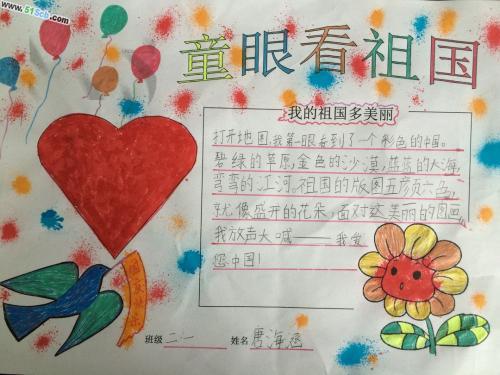 www.51Sch.cn
童眼看祖国
我的祖国多美丽
打开地图,我第一眼看到了一个彩色的中国。
碧绿的草原,金色的沙漠,蓝蓝的大海,
弯弯的江河,祖国的版图五颜六色,
就像盛开的花朵,面对这美丽的图画,
我放声大喊——我爱
您中国!
班级 二·一 姓名 唐海